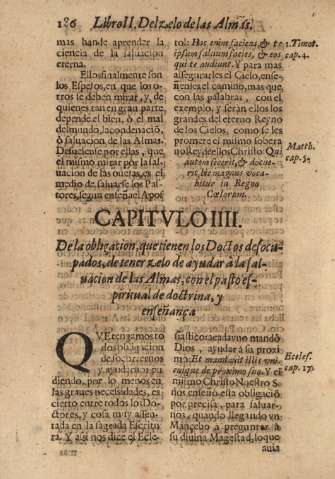 186 Libro II. Del zelo de las Almas.
mas han de aprender la
ciencia de la saluacion
eterna.
Ellos finalmente son
los Espejos, en que los o-
tros se deben mirar, y, de
quienes tan en gran parte,
depende el bien, ò el mal
del mundo, la condenació,
ò saluacion de las Almas.
Desuelense por ellas, que
el mismo mirar por la sal-
uacion de las ouejas, es el
medio de saluarse los Pas-
tores, segun enseña el Apos
tol: Hoc enim faciens, & te
ipsum saluum facies, & eos
qui te audiunt. Y para mas
assegurarles el Cielo, ense-
ñen̄les el camino, mas que
con las palabras, con el
exemplo, y seràn ellos los
grandes del eterno Reyno
de los Cielos, como se les
promete el mismo sobera-
no Rey de ellos Christo: Qui
autem fecerit, & docue-
rit, hic magnus voca-
bitur in Regno
Cœlorum.
1. Timot.
cap. 4.
Matth.
cap. 5.
CAPITVLO IIII.
De la obligacion, que tienen los Doctos desocu-
pados, de tener zelo de ayudar a la sal-
uacion de las Almas, con el pasto es-
piritual de doctrina, y
enseñança
QVE tengamo to-
dos obligacion
de socorrernos
y ayudarnos pu-
diendo, por lo menos en
las graues necessidades, es
cierto entre todos los Do-
ctores, y cosa muy assen-
tada en la sagrada Escritu-
ra. Y assi nos dice el Ecle-
siastico: a cada vno mandò
Dios, ayudar a su proxi-
mo: Et mandauit illis vni-
cuique de proximo suo. Y el
mismo Christo Nuestro Se-
ñor enseñò esta obligació
por precisa, para saluar-
nos, quando llegando vn
Mancebo a preguntar a
su diuina Magestad, lo que
auia
Eclesſ.
cap. 17.